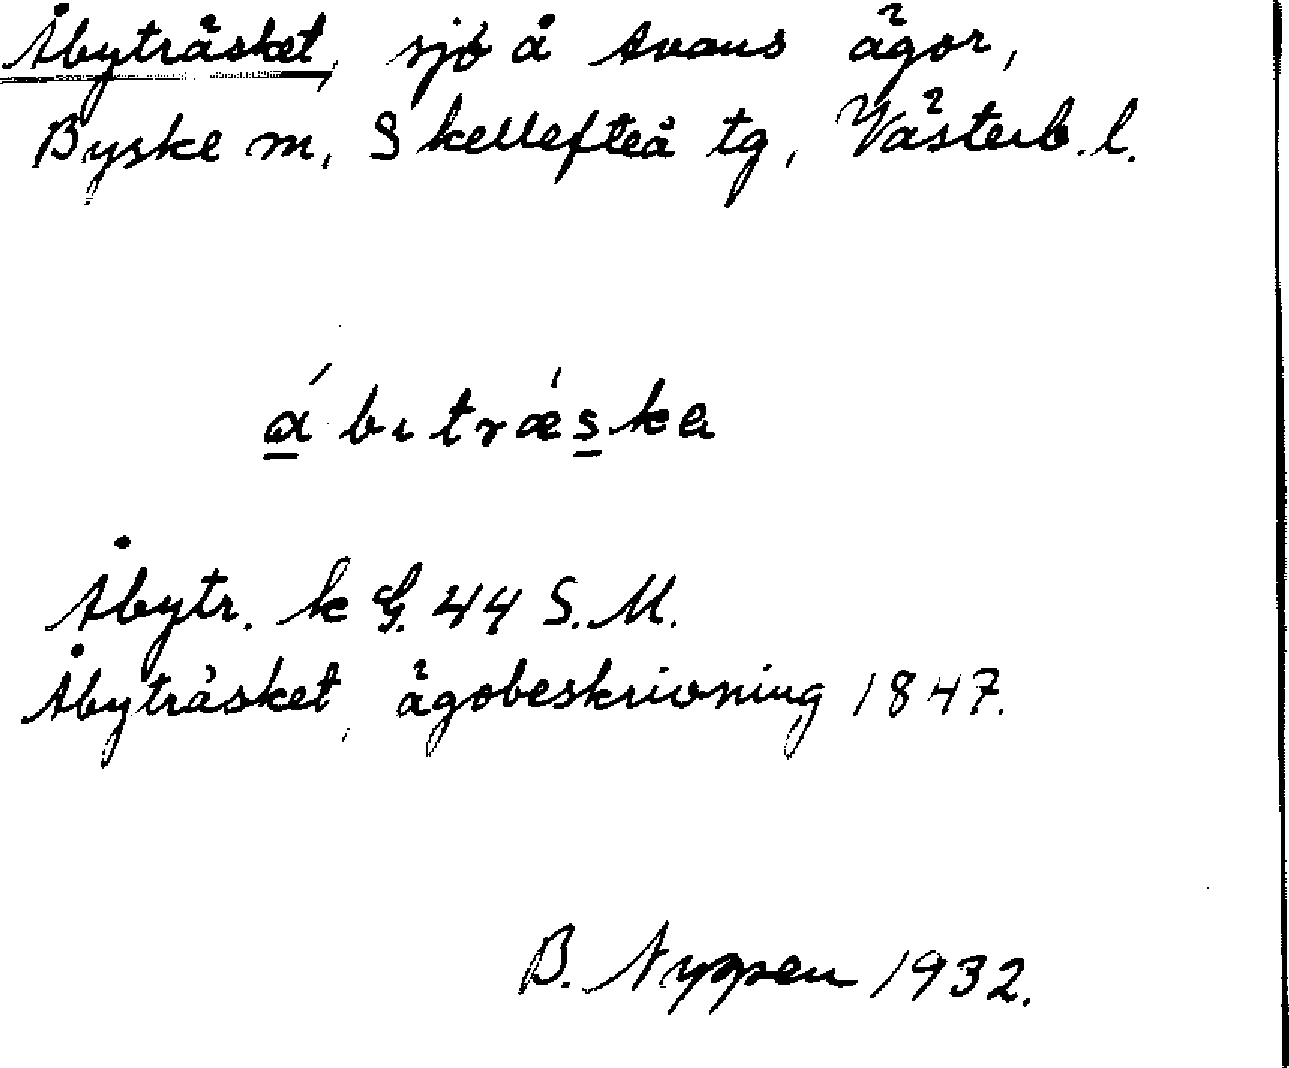 Åbyträsket, sjö å Avans ägor,
Byske m, Skellefteå tg, Västerb. l.
á bı træ´ska
Åbytr. k G. 44 S.M.
Åbyträsket, ägobeskrivning 1847.
B. 1932.